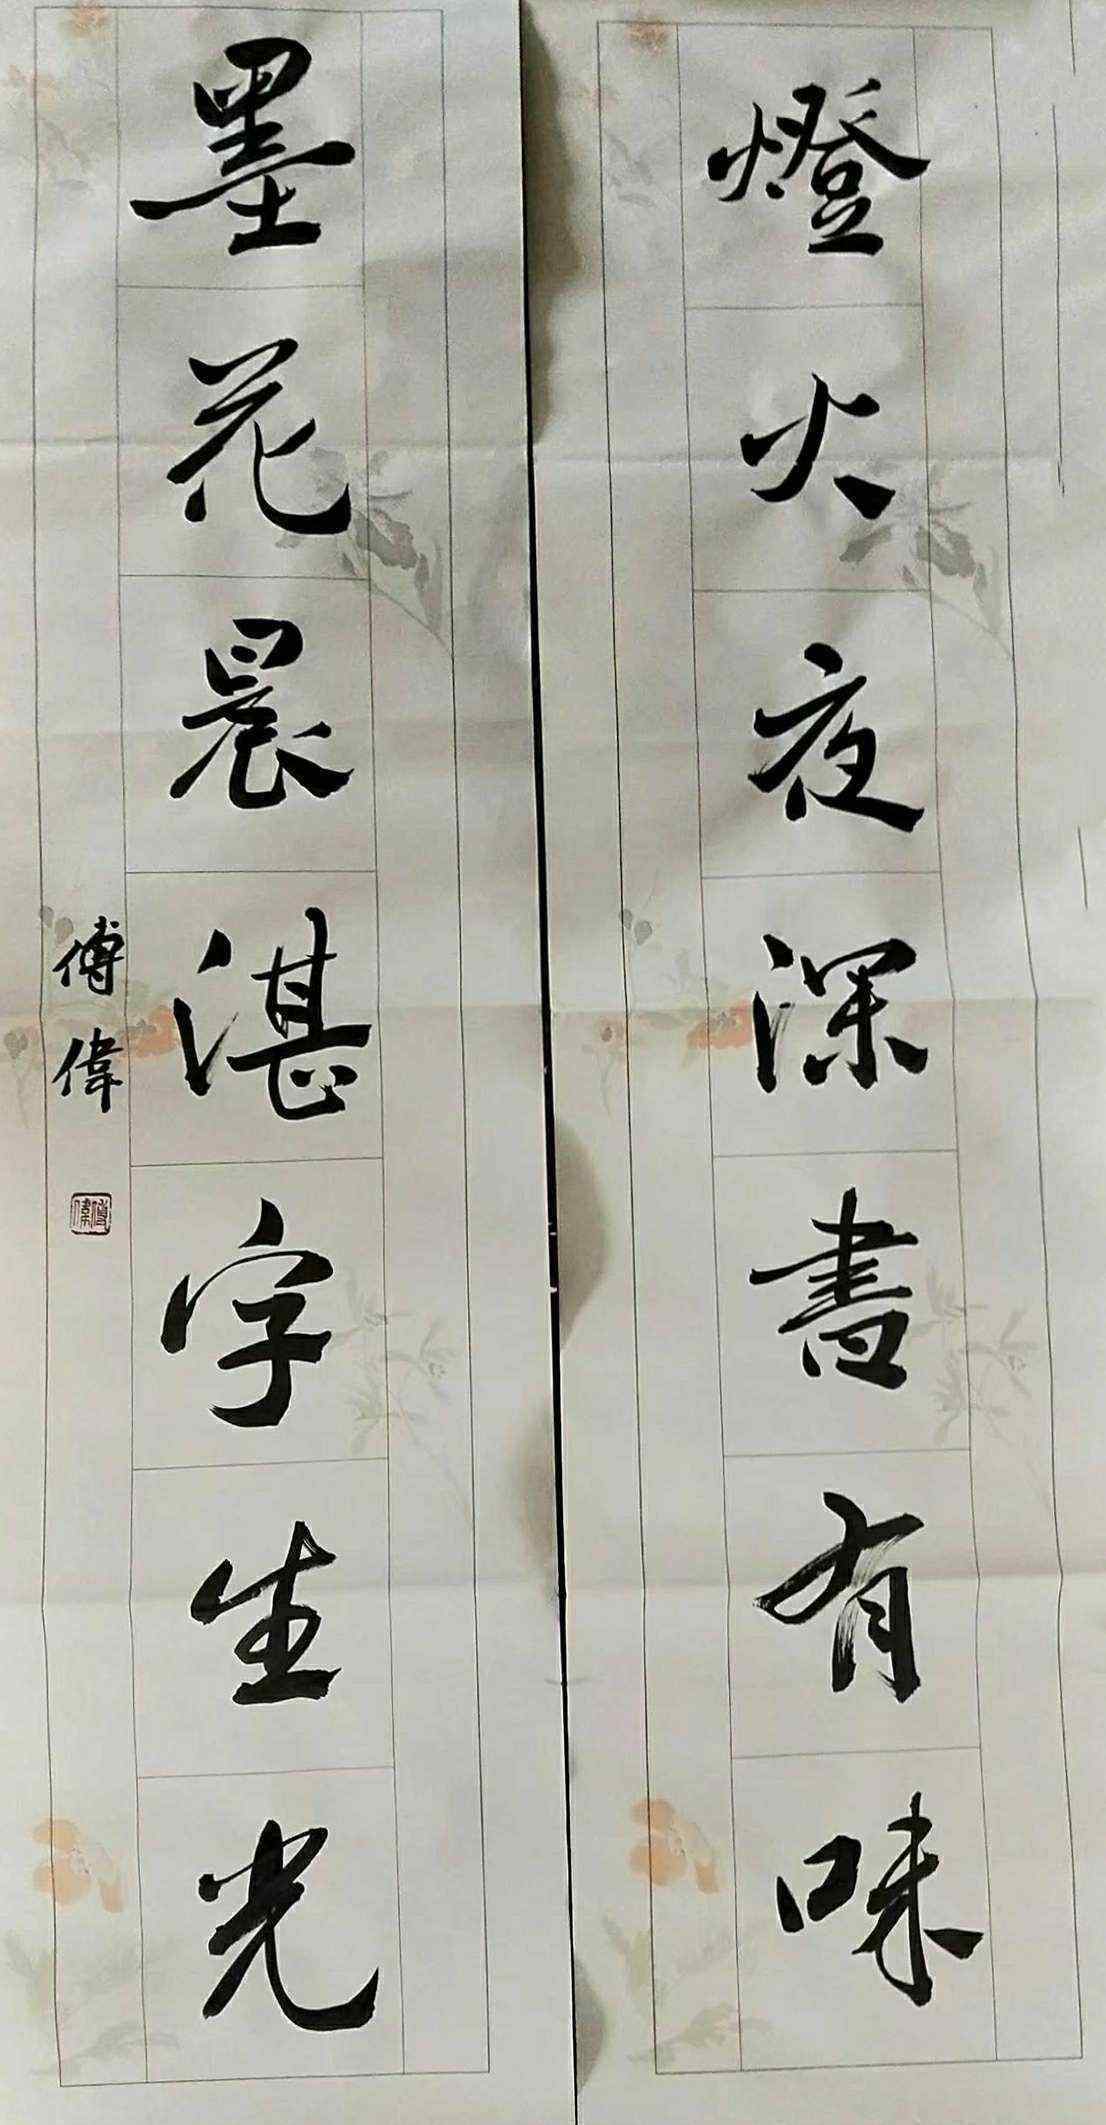 燈火夜深書有味
墨花晨湛字生光
傅偉